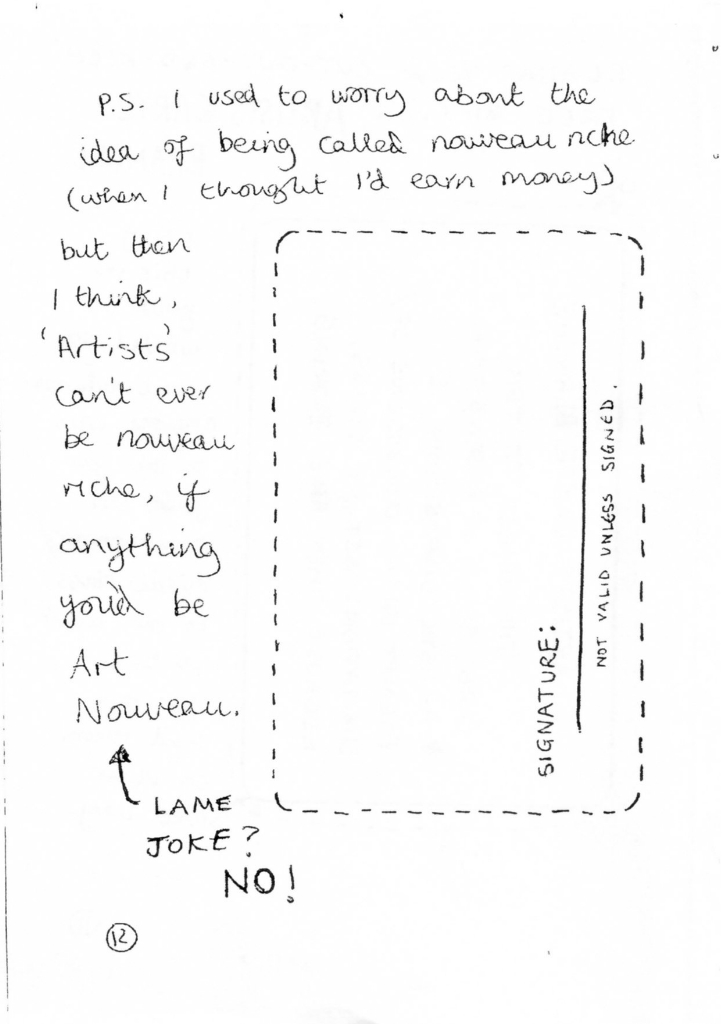 P.S. I used to worry about the
idea of being called nouveau riche
(when I thought I'd earn money)
but then
I think,
'Artists'
can't ever
be nouveau
riche, if
anything
you'd be
Art
Nouveau.
LAME
JOKE?
NO!
SIGNATURE:
NOT VALID UNLESS SIGNED.
12